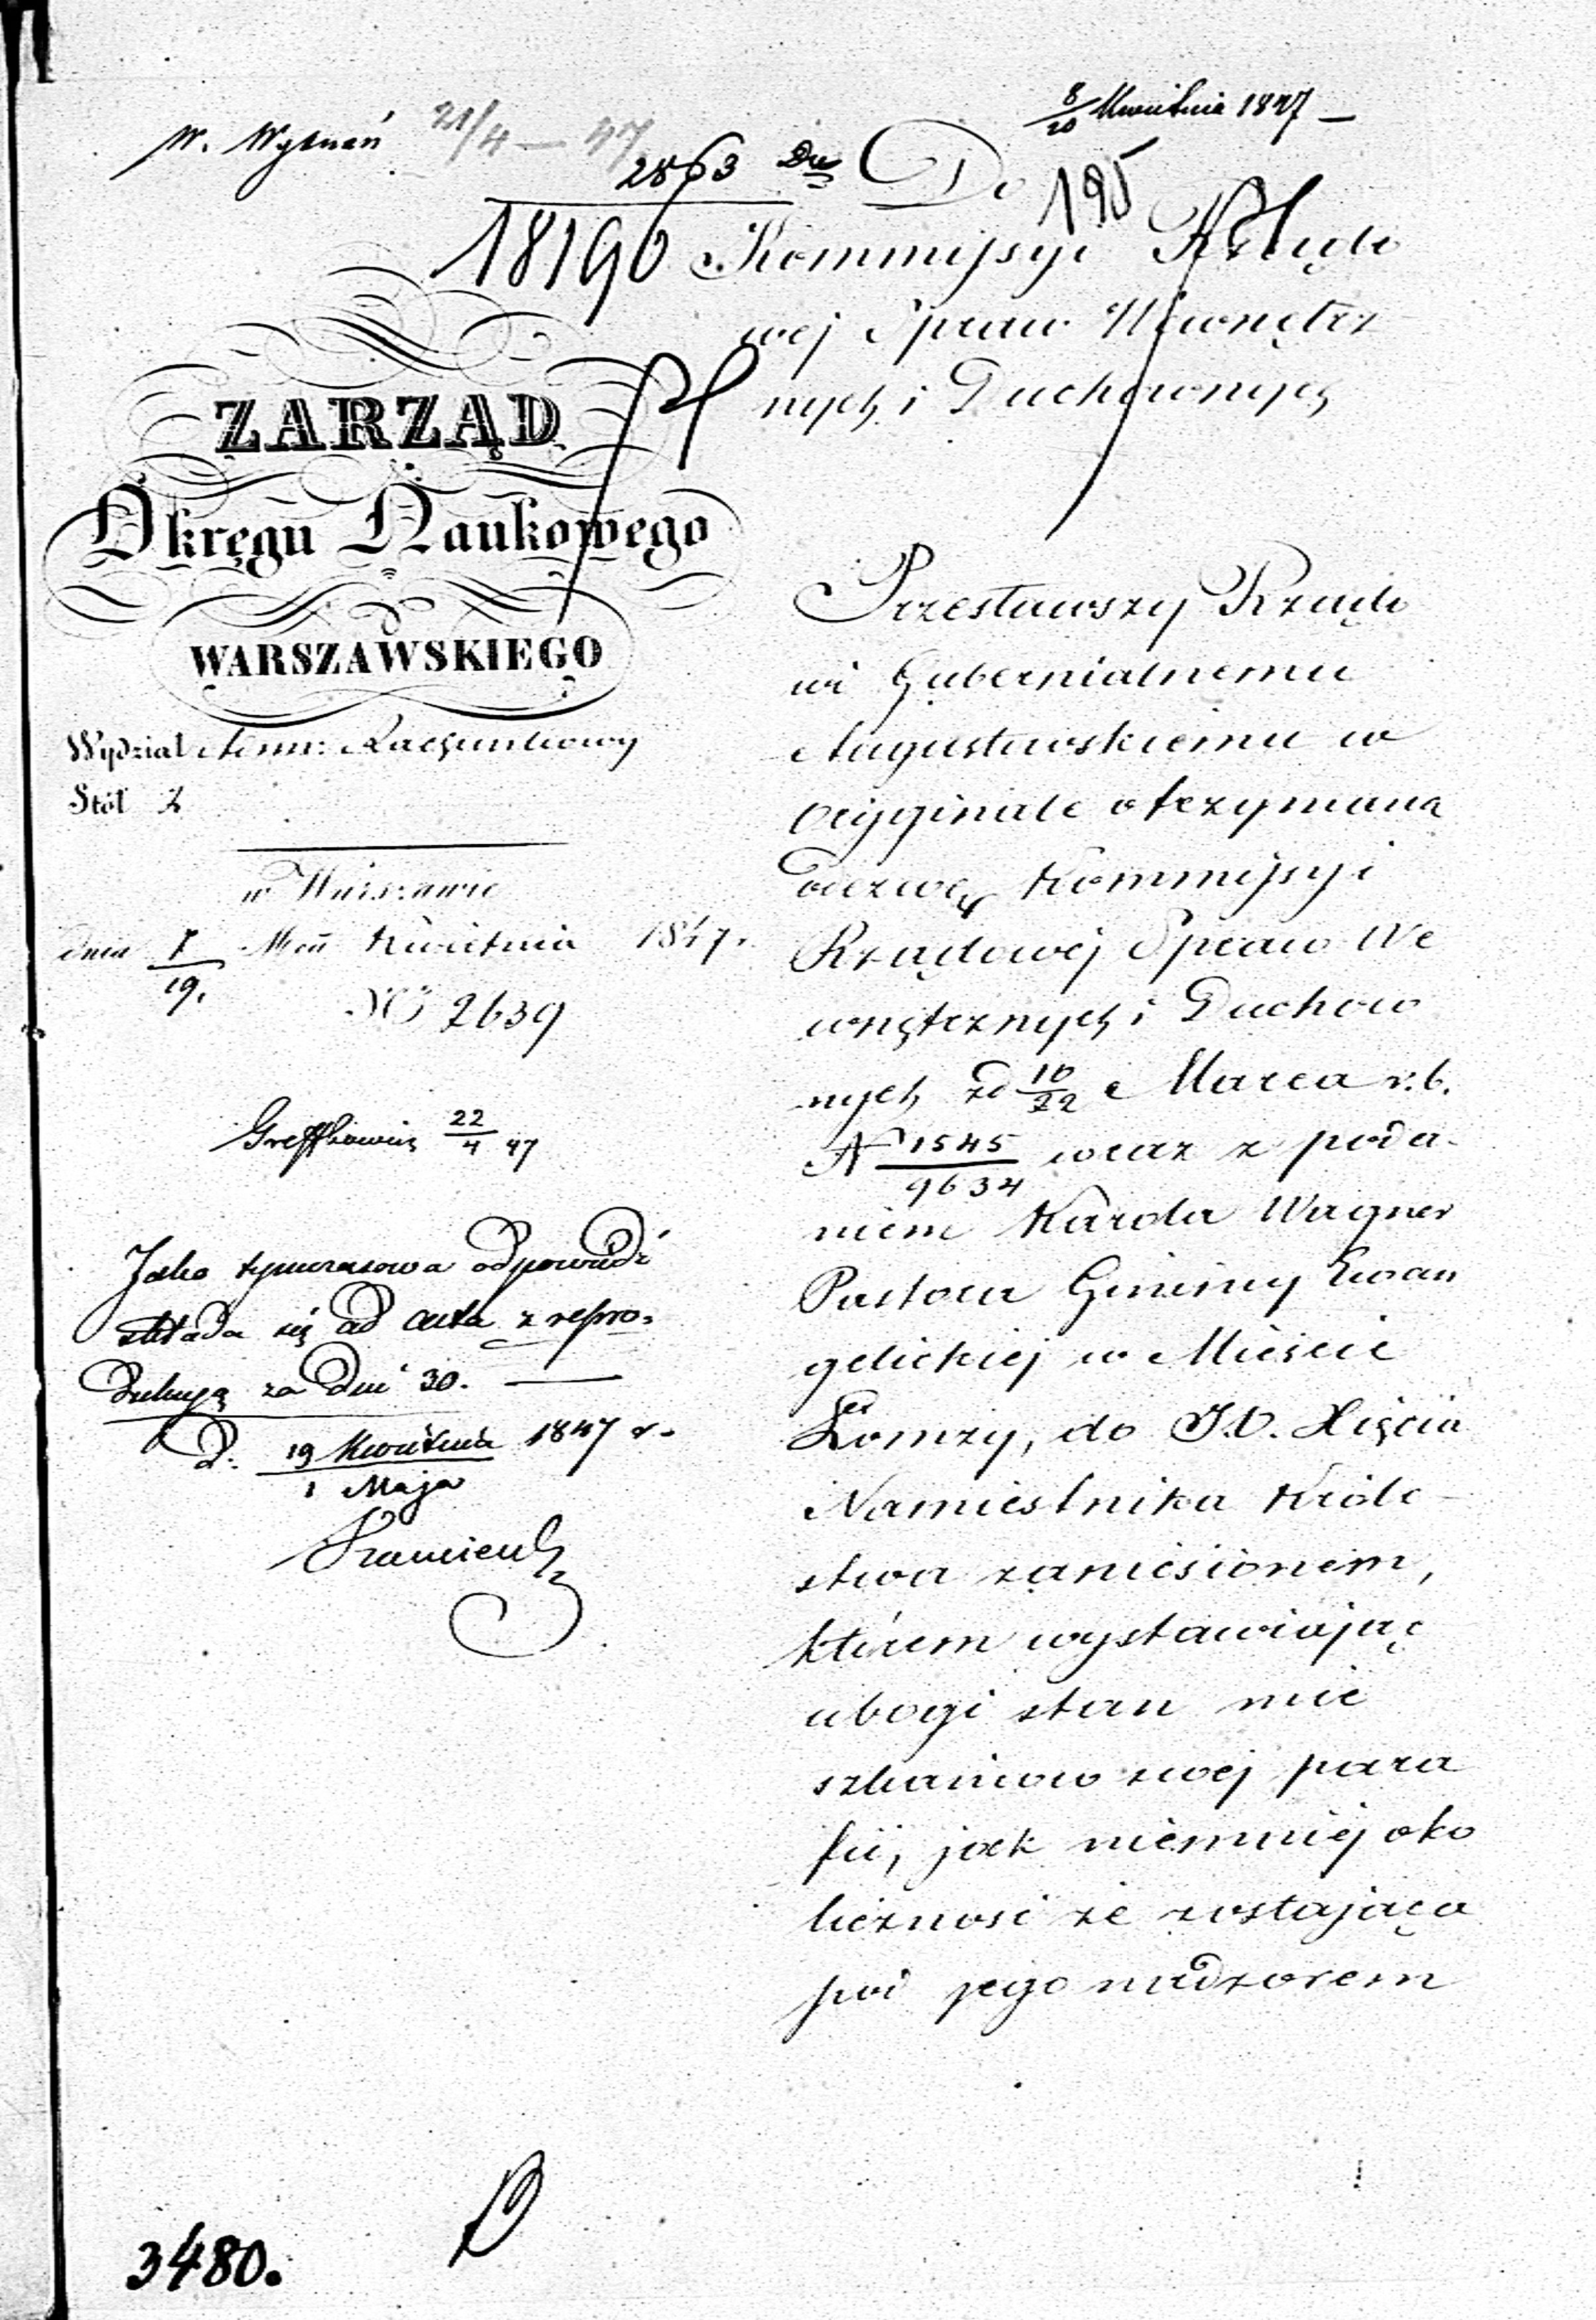 8/20 Kwietnia 1847 –
W. Wyznań 21/4 – 47
2863 Dw
18190
195
Do
Kommissyi Rządo
wej Spraw Wewnętrz
nych i Duchownych
ZARZĄD
Okręgu Naukowego
WARSZAWSKIEGO
Wydział Admi: Rachunkowy
Stół 2
w Warszawie
dnia 7/19. Mca Kwietnia 1847.
No 2639
22/4 47
Jako tymczasowa odpowiedź
składa się ad acta z repro-
dukcyą za dni 30. —
D. 19 Kwietnia / 1 Maja 1847 r.
Przesławszy Rządo
wi Gubernialnemu
Augustowskiemu w
oryginale otrzymaną
odezwę Kommissyi
Rządowej Spraw We
wnętrznych i Duchow
nych z d 10/22 Marca r.b.
N 1545/9634 wraz z poda-
niem Karola Wagner
Pastora Gminy Ewan
gelickiej w Mieście
Łomży, do J.O. Xięcia
Namiestnika Króle-
stwa zaniesionem,
którem wystawiając
ubogi stan mie
szkańców swej para
fii, jak niemniej oko
liczność że zostająca
pod jego nadzorem
3480.